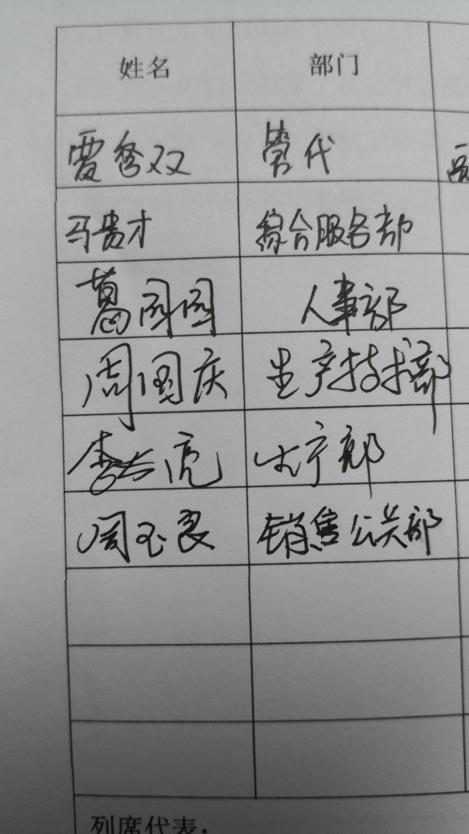 姓名 部门
贾秀双 管代
马贵才 综合服务部
葛园园 人事部
周国庆 生产技术部
生产部
周玉良 销售公关部
列席代表: